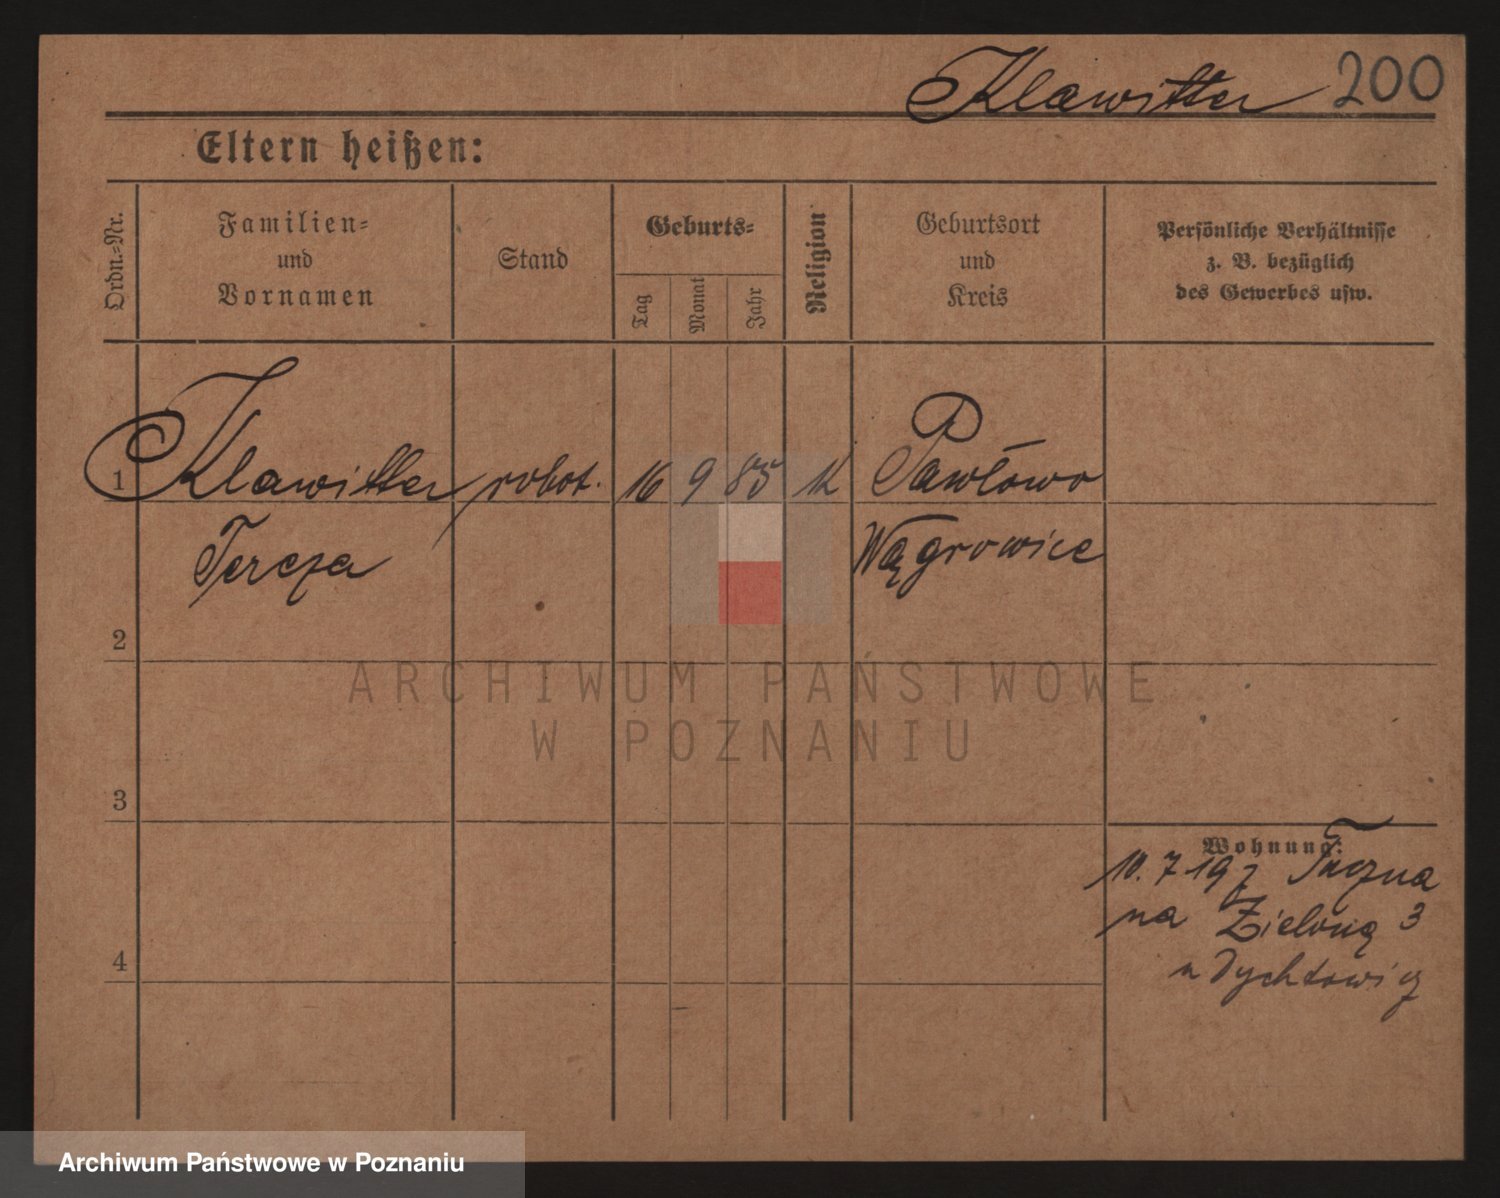 Klawitter 200
Eltern heißen:
Ordn.=Nr.
Familien=
und
Vornamen
Stand
Geburts=
Tag
Monat
Jahr
Religion
Geburtsort
und
Kreis
Persönliche Verhältnisse
z. B. bezüglich
des Gewerbes usw.
1 Klawitter robot. 16 9 85 K Pawłowo
Tereza Wągrowiec
2
3
4
Wohnung:
10. 7 19 z
na Zieloną 3
u
ARCHIWUM PAŃSTWOWE
W POZNANIU
Archiwum Państwowe w Poznaniu